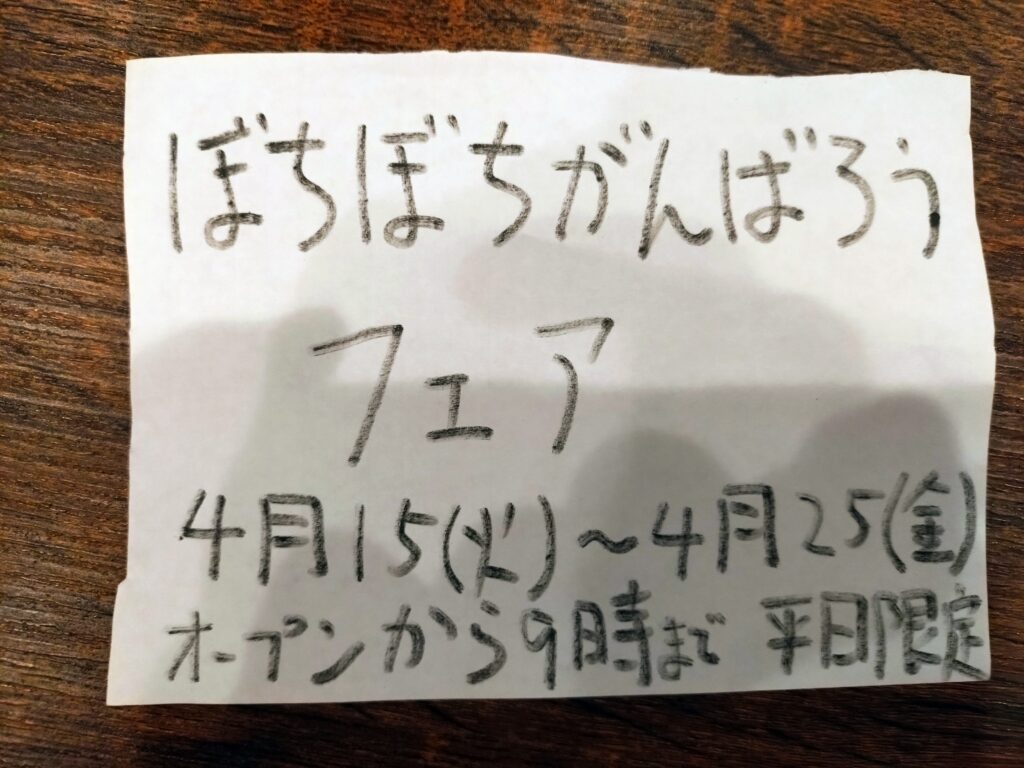 ぼちぼちがんばろう
フェア
4月15(火)～4月25(金)
オープンから9時まで 平日限定